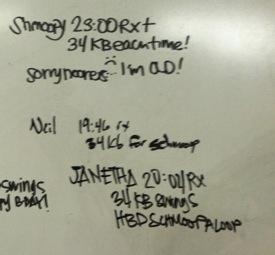 Shmoopy 23:00 Rx t
34 KB each time!
sorry no
I'm OLD!
Neil 19:46 rx
34kb for schmoop
JANETHA 20:04 Rx
34 KB Swings
HBD SCHMOOPALOOP
swings